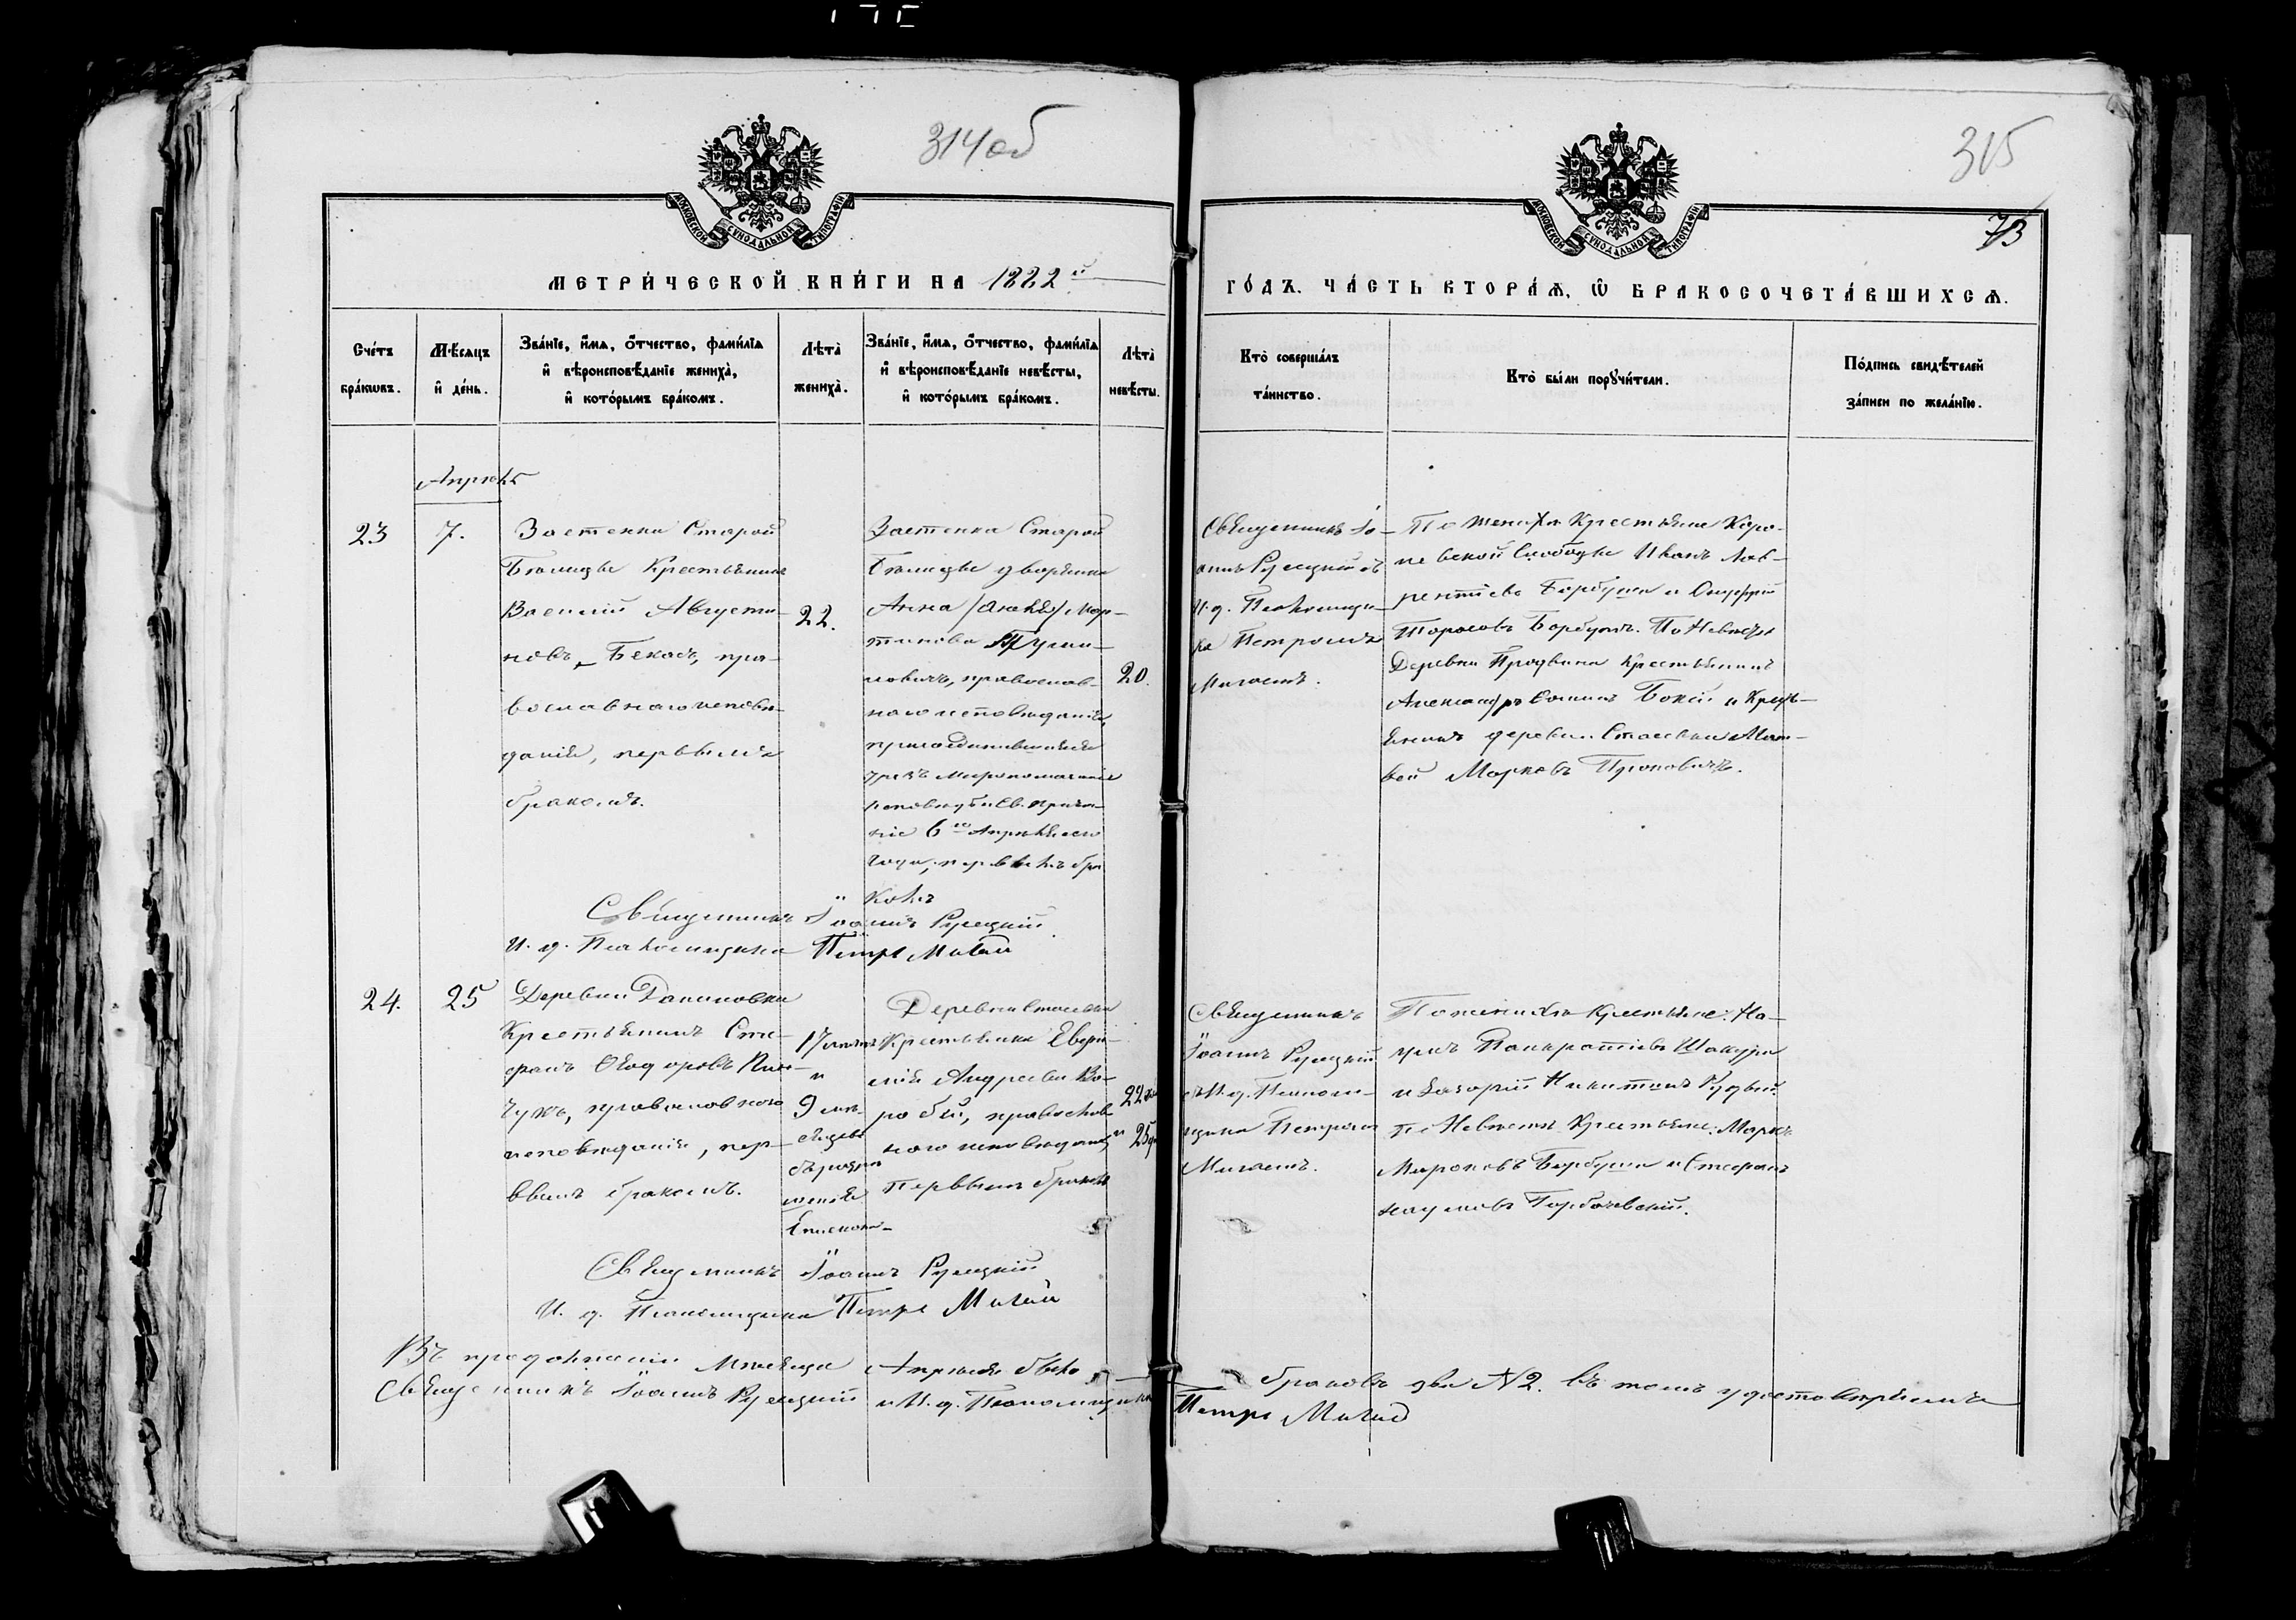 314об
315
73
МОСКОВСКОЙ СУНОДАЛЬНОЙ ТИПОГРАФІИ
МОСКОВСКОЙ СУНОДАЛЬНОЙ ТИПОГРАФІИ
МЕТРИ́ЧЕСКОЙ КНИ́ГИ НА 1882й
ГО́ДЪ. ЧА́СТЬ ВТОРА́Ѧ, Ѽ БРАКОСОЧЕТА́ВШИХСѦ.
Сче́тъ
бра́кωвъ.
Мѣ́сяцъ
и҆ де́нь.
Зва́нїе, и҆́мя, ѻ҆́тчество, фами́лїя
и҆ вѣроисповѣ́данїе жениха̀,
и҆ кото́рымъ бра́комъ.
Лѣ́та̀
жениха̀.
Зва́нїе, и҆́мя, ѻ҆́тчество, фами́лїя
и҆ вѣроисповѣ́данїе невѣ́сты,
и҆ кото́рымъ бра́комъ.
Лѣ́та̀
невѣ́сты.
Кто̀ соверша́лъ
та́инство.
Кто̀ бы́ли порꙋчи́тели.
По́дпись свидѣ́телей
за́писи по жела́нїю.
Апрѣль
23
7.
Застенка Старой
Бѣлицы Крестьянинъ
Василій Августи-
новъ Бекасъ, пра-
вославнаго исповѣ-
данія, первымъ
бракомъ.
22.
Застенка Старой
Бѣлицы дворянка
Анна Мар-
тинова
новичъ, православ-
наго исповѣданія,
присоединившаяся
чрезъ Миропомазаніе
исповѣдь и Св. Прича-
стіе 6го Апрѣля сего
года, первымъ бра
комъ
20.
Священникъ Іо-
аннъ Русецкій съ
И. д. Псаломщи-
ка Петромъ
Мигаемъ.
По женихѣ Крестьяне Каро-
левской Слободы Иванъ Лав-
рентіевъ Барбушъ и Онуфрій
Тарасовъ Барбушъ. По Невѣстѣ
Деревни Крестьянинъ
Александръ Бокій и Кресть-
янинъ деревни Стаевки Мат-
вей Марковъ Проковичъ.
Священникъ Іоаннъ Русецкій
И. д. Псаломщика Петръ Мигай
24.
25
Деревни Даниловки
Крестьянинъ Сте-
фанъ Ѳеодоровъ
чукъ, православнаго
исповѣданія, пер-
вымъ бракомъ.
17 лѣтъ
и
9 мѣ-
сяцевъ
съ разрѣ
шенія
Епископа
Деревни Стаевки
Крестьянка Евфи-
мія Андреева Во-
робей, православ
наго исповѣданія,
Первымъ бракомъ
22
и 25
Священникъ
Іоаннъ Русецкій
съ И. д. Псалом-
щика Петромъ
Мигаемъ.
По женихѣ Крестьяне: На-
умъ Панкратіевъ Шакура
и Захарій Никитинъ
По Невѣстѣ Крестьяне: Марко
Мироновъ Барбушъ и Стефанъ
Наумовъ Горбачевскій.
Священникъ Іоаннъ Русецкій
И. д. Псаломщика Петръ Мигай
Въ продолженіи Мѣсяца Апрѣля было браковъ два №2. въ томъ удостовѣряемъ
Священникъ Іоаннъ Русецкій и И. д. Псаломщика Петръ Мигай